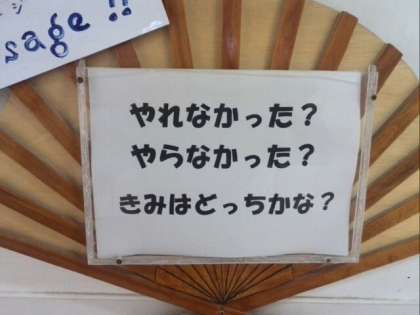 sage !!
やれなかった？
やらなかった？
きみはどっちかな？